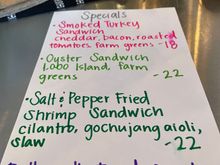 Specials
• Smoked Turkey
Sandwich
cheddar, bacon, roasted
tomatoes, farm greens -18
• Oyster Sandwich
Lobo Island, farm
greens
-22
• Salt & Pepper Fried
Shrimp Sandwich
cilantro, gochujang aioli,
slaw -22